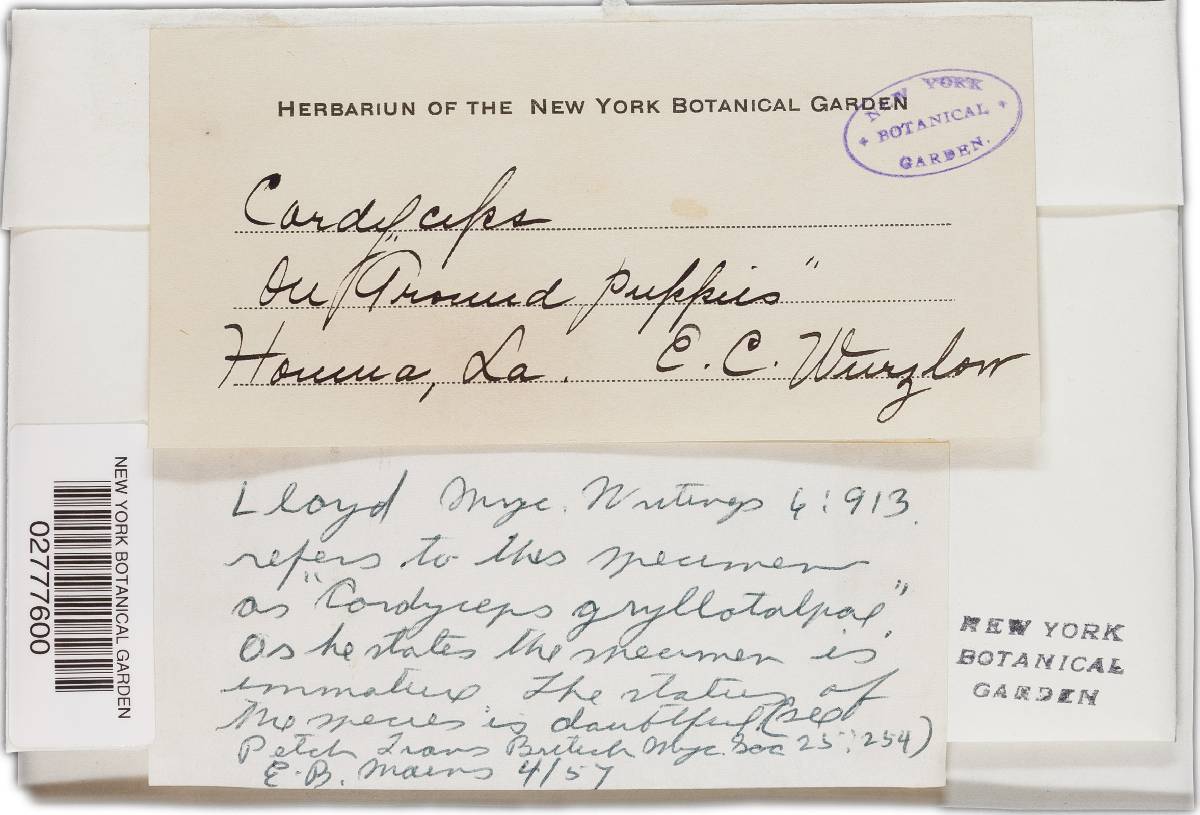 HERBARIUN OF THE NEW YORK BOTANICAL GARDEN
NEW YORK
BOTANICAL
GARDEN.
Cordyceps
On "Ground puppies"
Houma, La. E. C. Wurzlow
Lloyd Myc. Writings 6:913.
refers to this specimen
as "Cordyceps gryllotalpae"
As he states the specimen is
immature. The status of
the species is doubtful (see
Petch Trans British Myc. Soc 25:254)
E.B. Mains 4/57
NEW YORK BOTANICAL GARDEN
02777600
NEW YORK
BOTANICAL
GARDEN